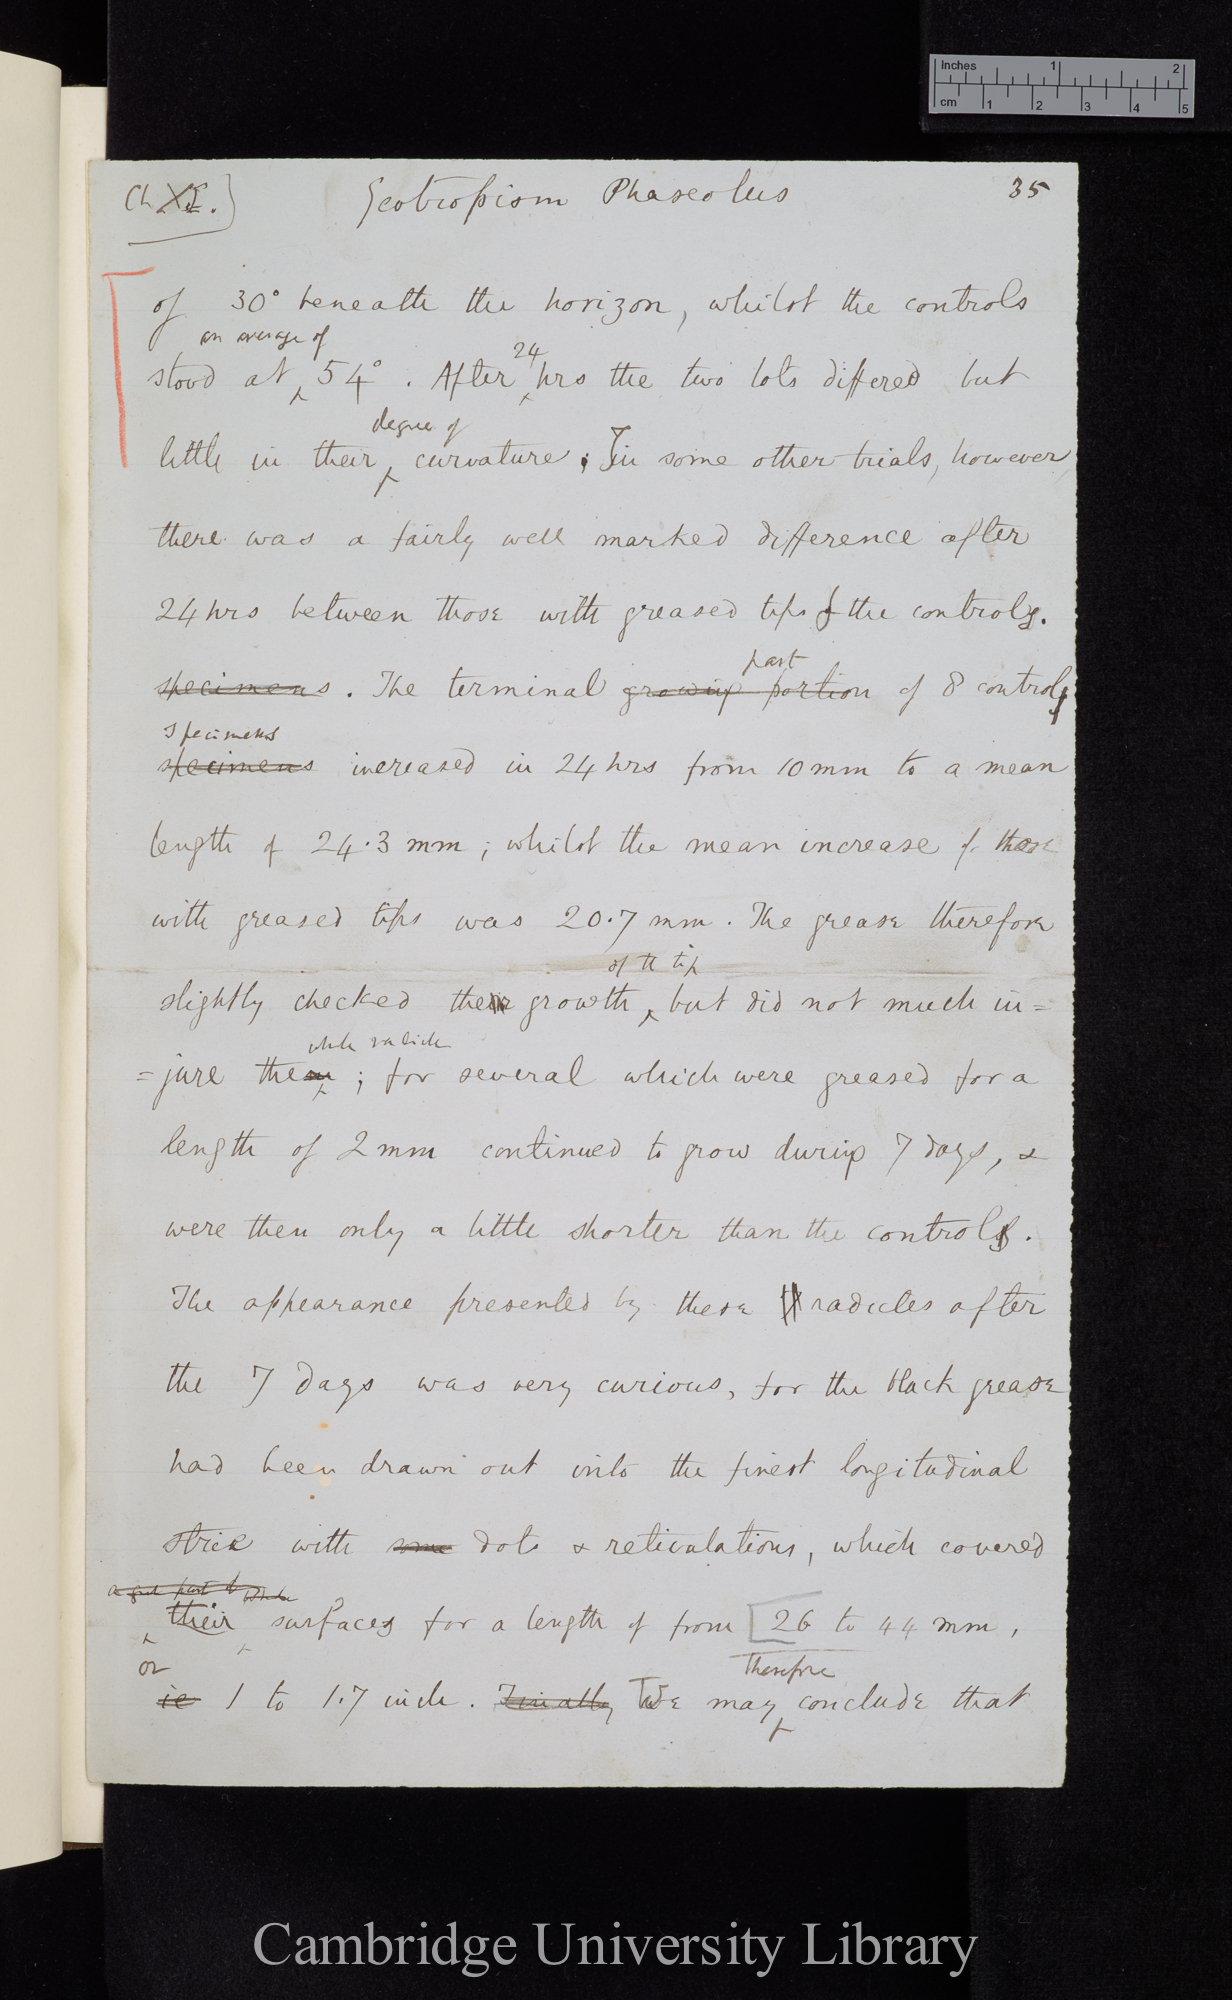 Inches 1 2
cm 1 2 3 4 5
Ch XI.]
Geotropism Phaseolus
35
of 30° beneath the horizon, whilst the controls
an average of
24
stood at 54°. After hrs the two lots differed but
degree of
little in their curvature. In some other trials, however,
there was a fairly well marked difference after
24 hrs between those with greased tips & the controls.
part
specimens. The terminal growing portion of 8 control
specimens
specimens increased in 24 hrs from 10 mm to a mean
length of 24.3 mm; whilst the mean increase of those
with greased tips was 20.7 mm. The grease therefore
of the tip
slightly checked the growth, but did not much in=
whole radicle
=jure the; for several which were greased for a
length of 2 mm continued to grow during 7 days, &
were then only a little shorter than the controls.
The appearance presented by these radicles after
the 7 days was very curious, for the black grease
had been drawn out into the finest longitudinal
striæ with some dots & reticulations, which covered
their surfaces for a length of from [26 to 44 mm,
or
Therefore
ie 1 to 1.7 inch. Finally We may conclude that
Cambridge University Library